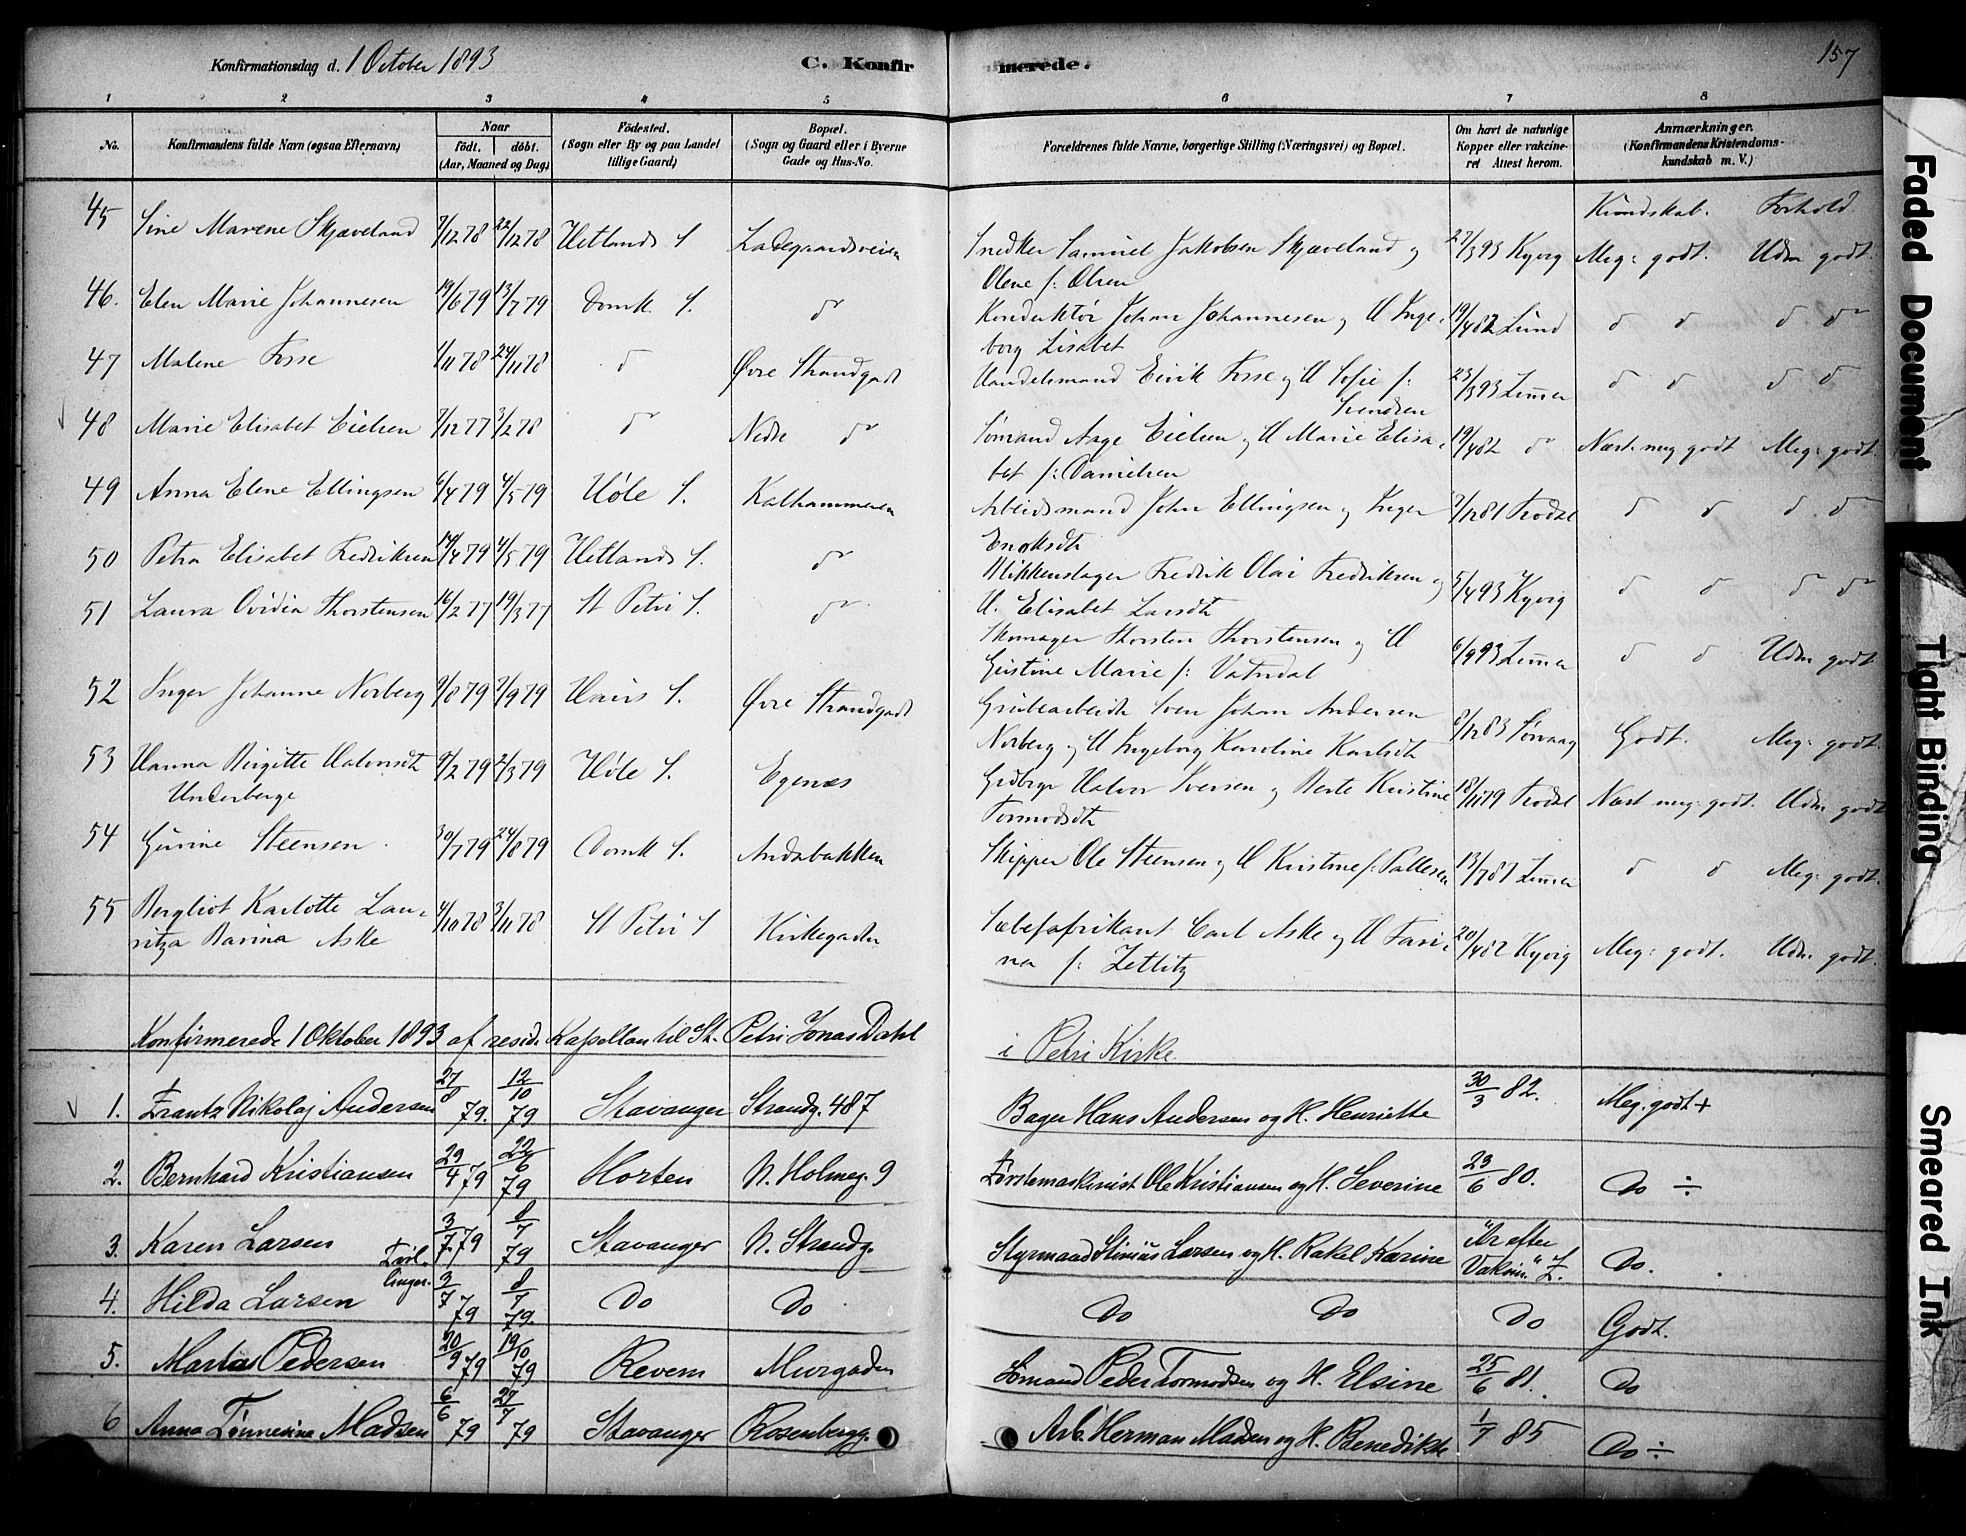 Konfirmationsdag d. 1 October 1893
C. Konfirmerede.
157
1 2 3 4 5 6 7 8
No.
Konfirmandens fulde Navn (ogsaa Efternavn)
Naar
født. døbt.
(Aar, Maaned og Dag)
Fødested.
(Sogn eller By og paa Landet
tillige Gaard)
Bopæl.
(Sogn og Gaard eller i Byerne
Gade og Hus-No.
Forældrenes fulde Navne, borgerlige Stilling (Næringsvei) og Bopæl.
Om havt de naturlige
Kopper eller vakcine-
ret Attest herom.
Anmærkninger.
(Konfirmandens Kristendoms-
kundskab m. V.)
Kundskab. Forhold.
45 Sine Marene Skjæveland 7/12 78 22/12 78 Hetlands S. Ladegaardsveien Snedker Samuel Jakobsen Skjæveland og 27/3 93 Kyvig Meg: godt. Udm godt.
Olene f: Olsen
46. Elen Marie Johannesen 19/6 79 13/7 79 Domk. S. do Konduktør Johan Johannesen og H Inge- 19/4 82 Lund do do do do
borg Lisabet
47 Malene Fosse 1/11 78 24/11 78 do Øvre Strandgad Handelsmand Eirik Fosse og H Sofie f: 23/3 93 Zimmer do do do do
Svendsen
48 Marie Elisabet Eielsen 7/12 77 3/2 78 do Nedre do Sømand Aage Eielsen og H Marie Elisa- 19/4 82 do Næst. meg godt Meg: godt.
bet f: Danielsen
49 Anna Elene Ellingsen 6/4 79 4/5 79 Høle S. Kalhammeren Arbeidsmand John Ellingsen og Inger 2/12 81 Frodal do do do do
Enoksdtr
50 Petra Elisabet Fredriksen 14/4 79 4/5 79 Hetlands S. do Blikkenslager Fredrik Olai Fredriksen og 5/4 93 Kyvig do do do do
H. Elisabet Larsdtr
51 Laura Ovidia Thorstensen 16/2 77 19/3 77 St Petri S. do Skomager Thorsten Thorstensen og H 6/9 93 Zimmer do do Udm godt
Gustine Marie f: Vatndal
52 Inger Johanne Norberg 9/8 79 7/9 79 Havs S. Øvre Strandgad Grubearbeidr Sven Johan Andersen 8/12 83 Godt. Meg: godt.
Norberg og H Ingeborg Karoline Karlsdtr
53 Hanna Birgitte Halvorsdtr 9/2 79 2/3 79 Høle S. Egenæs Halvor Iversen og Berte Kristine 18/11 79 Frodal Næst meg: godt. Udm godt
Underberge Tormodsdtr
54 Gurine Steensen. 30/7 79 24/8 79 Domk S. Andabakken Skipper Ole Steensen og H Kirstine f: Pallesen 13/7 81 Zimmer do do Meg: godt.
55 Bergliot Karlotte Lau- 4/10 78 3/11 78 St Petri S Kirkegaden Sæbefabrikant Carl Aske og H Fari- 20/4 82 Kyvig Meg: godt. Udm. godt.
ritza Barina Aske na f: Zetlitz
Konfirmerede 1 Oktober 1893 af resid. Kapellan til St. Petri Jonas Dahl i Petri Kirke
1. Frantz Nikolaj Andersen 27/8 79. 12/10 79 Stavanger Strandg. 487 Bager Hans Andersen og H. Henriette 30/3 82. Meg. godt +
2. Bernhard Kristiansen 29/4 79 22/6 79 Horten N. Holmeg. 9 Førstemaskinist Ole Kristiansen og H. Severine 23/6 80. Do ÷
3. Karen Larsen 3/7 79 8/7 79 Stavanger N. Strandg. Styrmand Stinius Larsen og H. Rakel Karine "Ar efter Do.
Tvil- Vakcin." Z.
linger.
4. Hilda Larsen 3/7 79 8/7 79. Do Do Do Do Do Godt.
5. Martas Pedersen 20/9 79 19/10 79 Revem Murgaden Sømand Peder Tormodsen og H. Elsine 25/6 81. Do
6 Anna Tønnesine Madsen 6/6 79 27/7 79 Stavanger Rosenbergg. Arb. Herman Madsen og H. Benedikte 1/7 85 Do ÷
Faded Document
Tight Binding
Smeared Ink